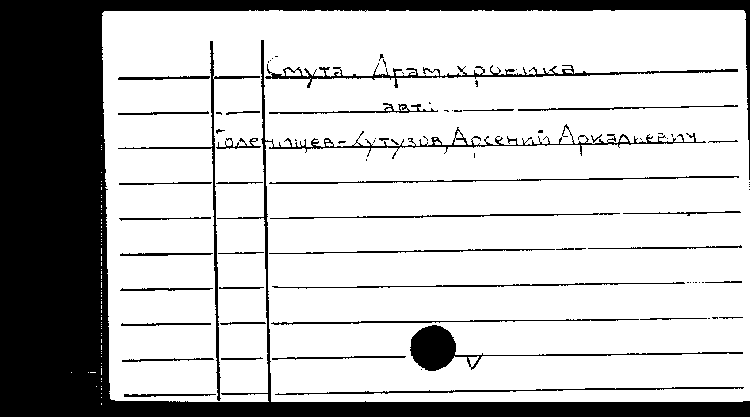 Смута. Драм. хроника.
авт.:
Голенищев-Кутузов, Арсений Аркадьевич
V